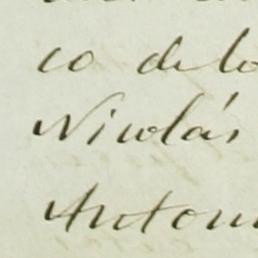 co de lo
Nicolás
Anton